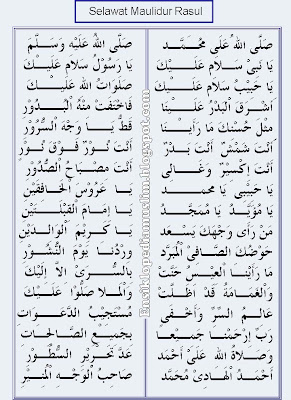 Selawat Maulidur Rasul
صَلَّى اللهُ عَلَى مُحَمَّد صَلَّى اللهُ عَلَيْهِ وَسَلَّمَ
يَا نَبِى سَلَام عَلَيْكَ يَا رَسُوْلُ سَلَام عَلَيْكَ
يَا حَبِيْبُ سَلَام عَلَيْكَ صَلَوَاتُ اللهْ عَلَيْكَ
أَشْرَقَ الْبَدْرُ عَلَيْنَا فَاخْتَفَتْ مِنْهُ الْبُدُوْرُ
مِثْلَ حُسْنِكَ مَا رَأَيْنَا قَطُّ يَا وَجْهَ السُّرُوْرِ
أَنْتَ شَمْسٌ أَنْتَ بَدْرٌ أَنْتَ نُوْرٌ فَوْقَ نُوْرِ
أَنْتَ إِكْسِيْرٌ وَغَالِى أَنْتَ مِصْبَاحُ الصُّدُوْرِ
يَا حَبِيْبِى يَا مُحَمَّد يَا عَرُوْسَ الْخَافِقَيْنِ
يَا مُؤَيَّد يَا مُمَجَّد يَا إِمَامَ الْقِبْلَتَيْنِ
مَنْ رَأَى وَجْهَكَ يَسْعَد يَا كَرِيْمَ الْوَالِدَيْنِ
حَوْضُكَ الصَّافِى الْمُبَرَّد وِرْدُنَا يَوْمَ النُّشُوْرِ
مَا رَأَيْنَا الْعِيْسَ حَنَّتْ بِالسُّرَى الَّا إِلَيْكَ
وَالْغَمَامَة قَدْ اَظَلَّتْ وَالْمَلَا صَلُّوْا عَلَيْكَ
عَالِمَ السِّرِّ وَأَخْفَى مُسْتَجِيْبُ الدَّعَوَاتِ
رَبِّ ارْحَمْنَا جَمِيْعًا بِجَمِيْعِ الصَّالِحَاتِ
وَصَلَاةُ اللهِ عَلَى أَحْمَد عَدَّ تَحْرِيْرِ السُّطُوْرِ
أَحْمَدُ الْهَادِىْ مُحَمَّد صَاحِبُ الْوَجْهِ الْمُنِيْرِ
Ensiklopediamuslim.blogspot.com